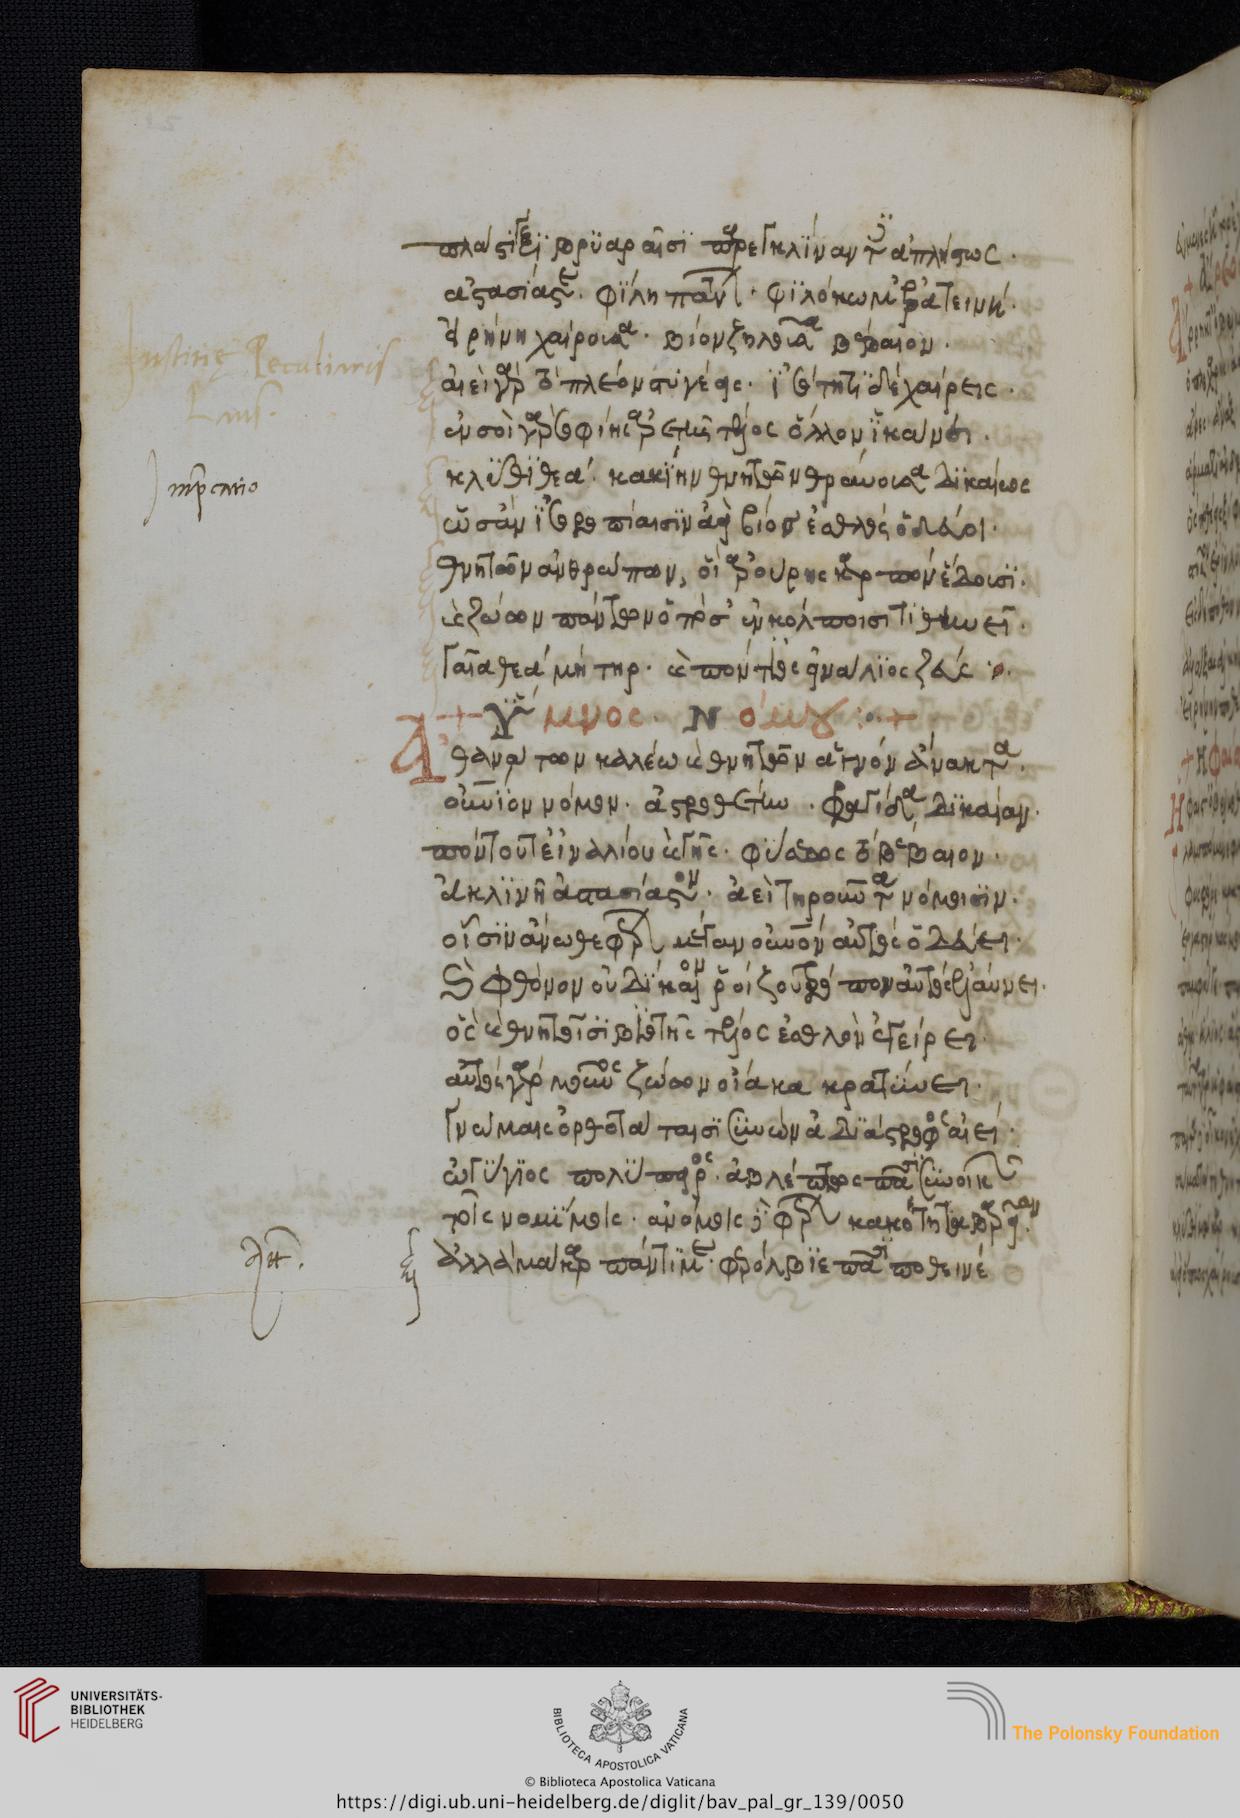 πλάστιγξϊ βρϋαραῖσϊ παρεγκλϊναντας ἀπλήστως.
ἀστασίαστε. φϊλη πάντων. φϊλόκωμ' ἐρατεινή.
εἰρήνη χαίρουσα. βίον ζηλοῦσα βέβαιον.
αἰεὶ γὰρ τὸ πλέον στυγέεις. ἰσότητϊ δὲ χαίρεις.
ἐν σοὶ γὰρ σοφίης ἀρετῆς τέλος ἱκάνει.
κλῦθϊ θεά. κακϊην θνητῶν θραύουσα δϊκαίως
ὡς ἂν ἰσορροπίαισϊν ἀεὶ βίος ἐσθλὸς ὁδεύοι.
θνητῶν ἀνθρώπων, οἳ ἀρούρης καρπὸν ἔδουσϊ.
καὶ ζώων πάντων ὁπόσ' ἐν κόλποισι τιθηνεῖ.
Γαῖα θεὰ μήτηρ. καὶ πόντιος εἰνάλϊος ζεύς.
+ Ὕμνος. Νόμου +
Ἀθανάτων καλέω καὶ θνητῶν ἁγνὸν ἄνακτα.
οὐράνϊον νόμον. ἀστροθέτην. σφραγίδα δϊκαίαν.
πόντου τ' εἰναλίου καὶ γῆς. φύσεως τὸ βέβαιον.
ἀκλϊνῆ ἀστασίαστον. ἀεὶ τηροῦντα νόμοισϊν.
οἷσϊν ἄνωθε φέρων μέγαν οὐρανὸν αὐτὸς ὁδεύει.
καὶ φθόνον οὐ δϊκαιον ῥοίζου τρόπον αὐτὸς ἐλαύνει.
ὃς καὶ θνητοῖσϊ βϊοτῆς τέλος ἐσθλὸν ἐγείρει.
αὐτὸς γὰρ μοῦνος ζώων οἴακα κρατύνει.
Γνώμαις ὀρθοτάταισϊ συνὼν ἀδϊάστροφος αἰεί.
ὠγύγϊος πολύπειρος. ἀβλάπτως πᾶσϊ συνοικῶν
τοῖς νομϊμοις. ἀνόμοις δὲ φέρων κακότητα βαρεῖαν.
ἀλλὰ μάκαρ πάντϊμε. φερόλβϊε πᾶσϊ ποθεινέ
UNIVERSITÄTS-
BIBLIOTHEK
HEIDELBERG
BIBLIOTECA APOSTOLICA VATICANA
The Polonsky Foundation
© Biblioteca Apostolica Vaticana
https://digi.ub.uni-heidelberg.de/diglit/bav_pal_gr_139/0050